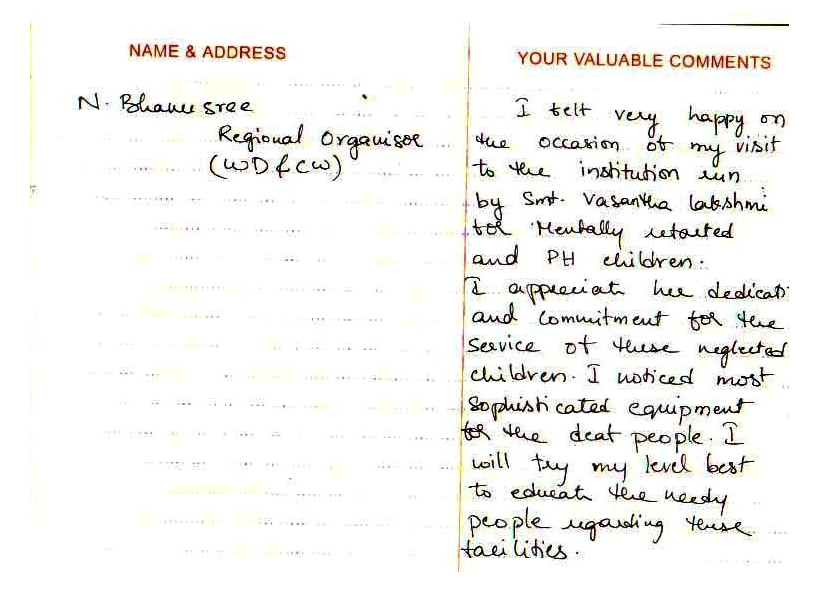 NAME & ADDRESS
N. Bhanusree
Regional Organiser
(WD & CW)
YOUR VALUABLE COMMENTS
I felt very happy on
the occasion of my visit
to the institution run
by Smt. Vasantha Lakshmi
for Mentally retarted
and PH children.
I appreciate her dedicati
and commitment for the
service of these neglected
children. I noticed most
sophisticated equipment
for the deaf people. I
will try my level best
to educate the needy
people regarding these
facilities.